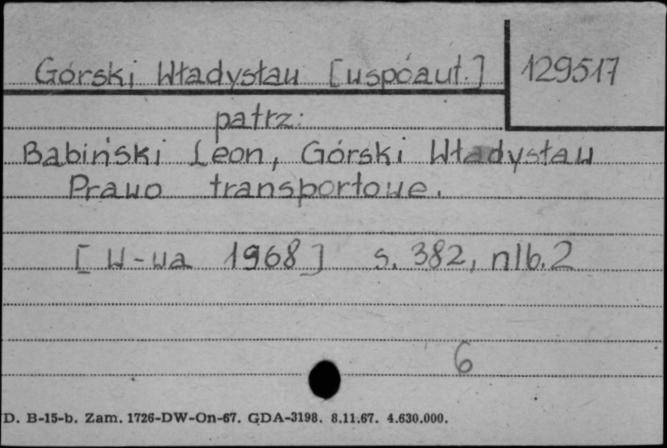 Górski Władysław [współaut.] 129517
patrz:
Babiński Leon, Górski Władysław
Prawo transportowe.
[W-wa 1968] s. 382, nlb. 2
6
D. B-15-b. Zam. 1726-DW-On-67. GDA-3198. 8.11.67. 4.630.000.